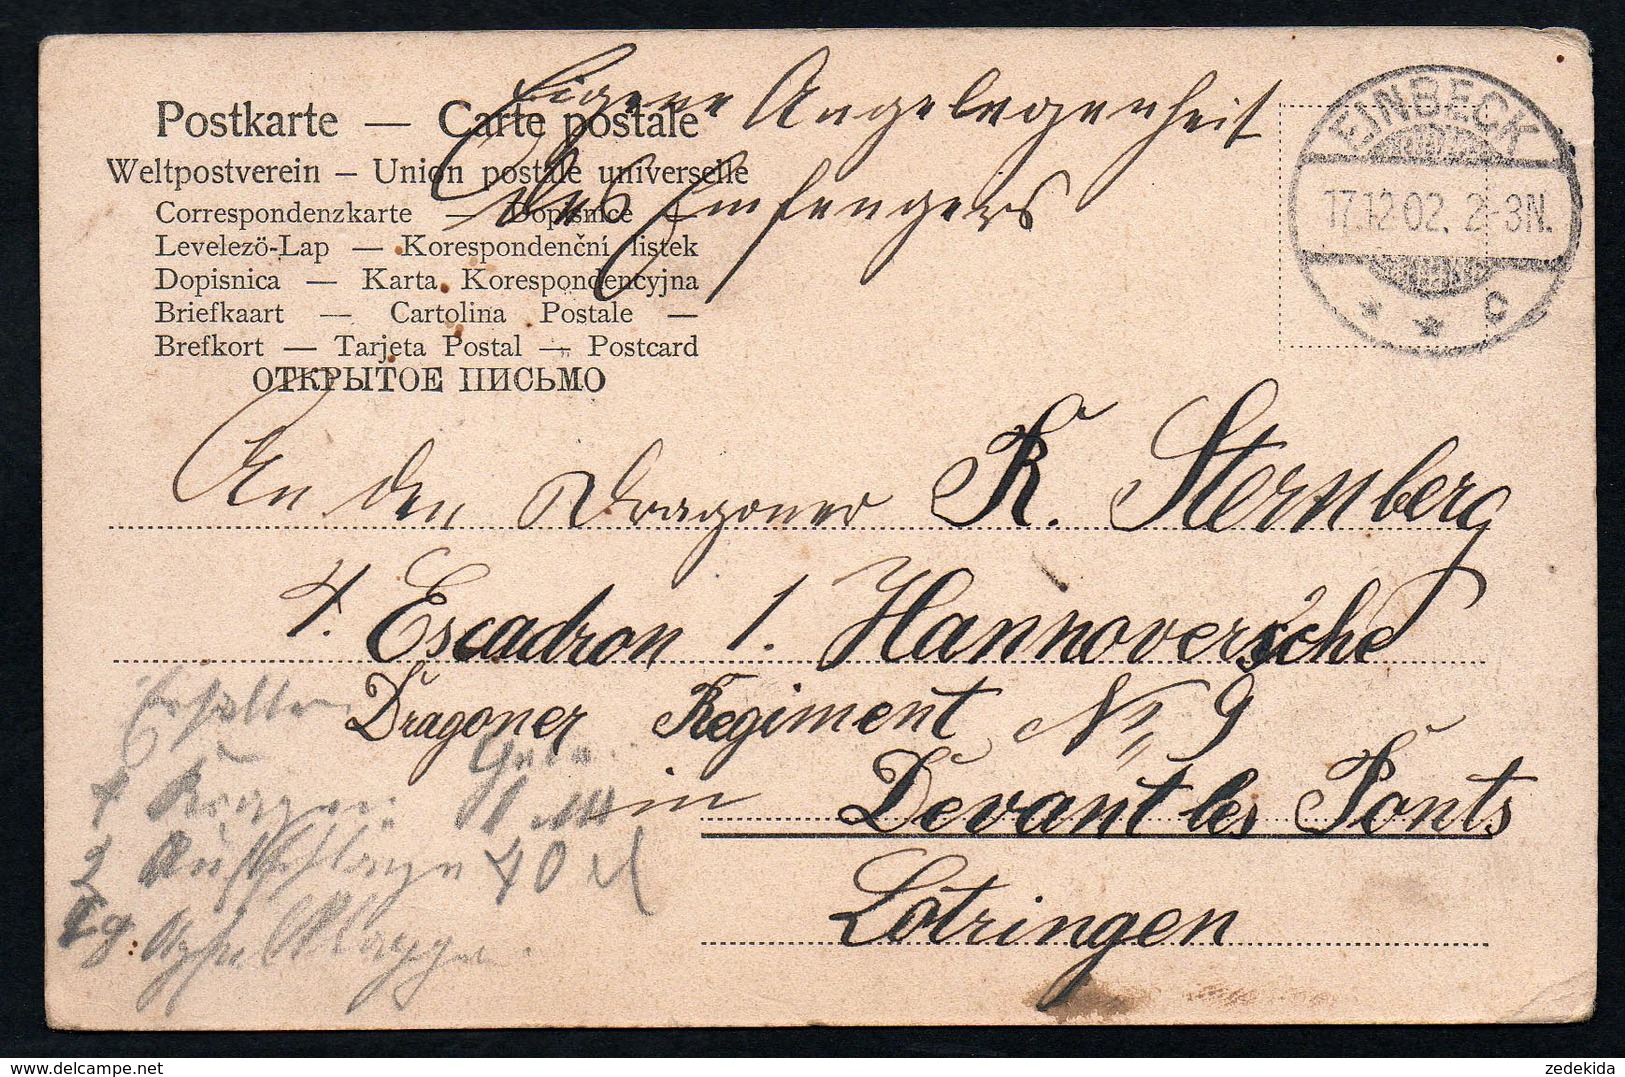 Eigene Angelegenheit
des Empfengers
Postkarte — Carte postale
Weltpostverein – Union postale universelle
Correspondenzkarte — Dopisnice —
Levelezö-Lap — Korespondenční listek
Dopisnica — Karta Korespondencyjna
Briefkaart — Cartolina Postale —
Brefkort — Tarjeta Postal — Postcard
ОТКРЫТОЕ ПИСЬМО
EINBECK
17.12.02. 2-3N.
* * C
An den Dragoner R. Sternberg
4. Escadron 1. Hannoversche
Dragoner Regiment No 9
in Devant les Ponts
Lotringen
Erhalten
4 Kragen 1 M
2 40
zedekida